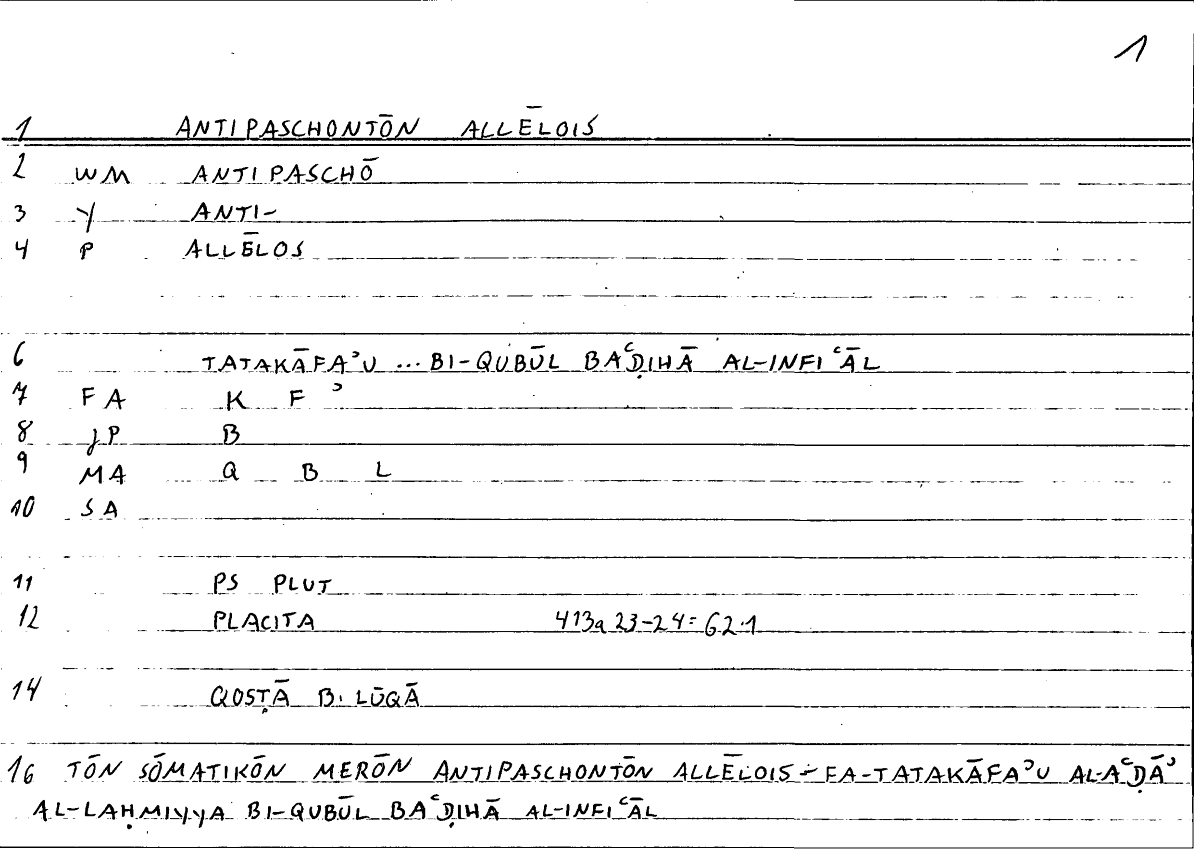 1
1 ANTIPASCHONTŌN ALLĒLOIS
2 WM ANTIPASCHŌ
3 Y ANTI-
4 P ALLĒLOS
6 TATAKĀFAʾU ... BI-QUBŪL BAʿḌIHĀ AL-INFIʿĀL
7 FA K F ʾ
8 JP B
9 MA Q B L
10 SA
11 PS PLUT
12 PLACITA 413a 23-24=62.1
14 QOSṬĀ B. LŪQĀ
16 TŌN SŌMATIKŌN MERŌN ANTIPASCHONTŌN ALLĒLOIS - FA-TATAKĀFAʾU AL-AʿḌĀʾ
AL-LAḤMIYYA BI-QUBŪL BAʿḌIHĀ AL-INFIʿĀL